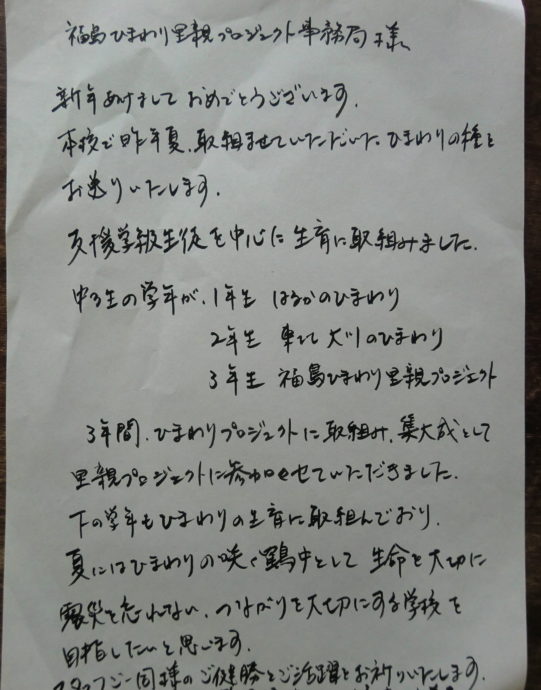 福島ひまわり里親プロジェクト事務局様
新年あけましておめでとうございます.
本校で昨年夏、取組ませていただいたひまわりの種を
お送りいたします.
支援学級生徒を中心に生育に取組みました.
中3生の学年が、1年生 はるかのひまわり
2年生 東北 大川のひまわり
3年生 福島ひまわり里親プロジェクト
3年間、ひまわりプロジェクトに取組み、集大成として
里親プロジェクトに参加させていただきました.
下の学年もひまわりの生育に取組んでおり、
夏にはひまわりの咲く 中として 生命を大切に
震災を忘れない、つながりを大切にする学校を
目指したいと思います.
スタッフ一同様のご健勝とご活躍をお祈りいたします.